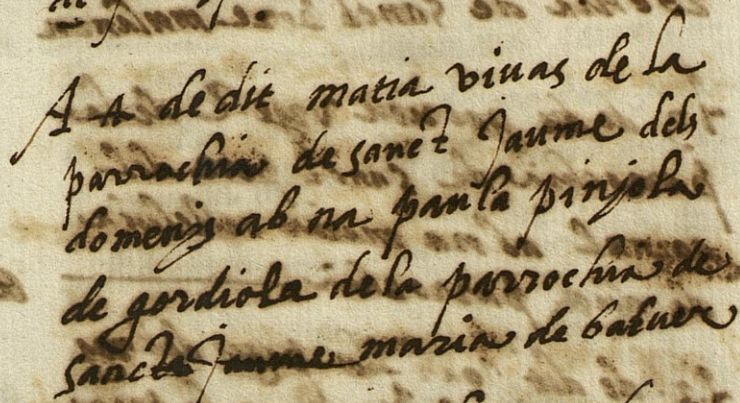 A 4 de dit matia vivas de la
parrochia de sanct Jaume dels
domenys ab na paula pinyola
de gordiola de la parrochia de
sancta Jaume maria de baluer